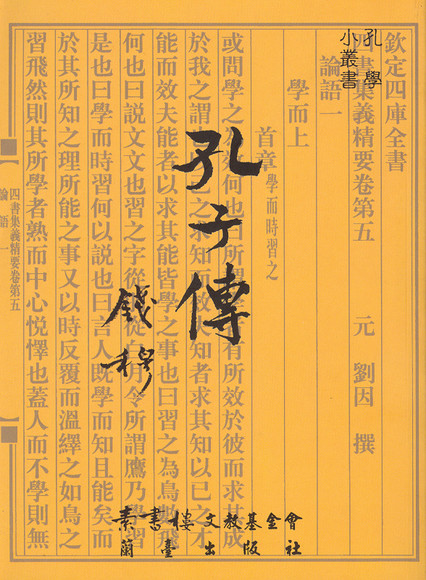 孔學
小叢書
孔子傳
錢穆
素書樓文教基金會
蘭臺出版社
欽定四庫全書
四書集義精要卷第五 元 劉因 撰
論語一
學而上
首章學而時習之
或問學之何也曰所謂學有所效於彼而求其成
於我之謂己之未知而效夫知者求其知以己之才
能而效夫能者以求其能皆學之事也曰習之為鳥飛
何也曰說文文也習之字從從白月令所謂鷹乃學習
是也曰學而時習何以說也曰言人既學而知且能矣而
於其所知之理所能之事又以時反覆而溫繹之如鳥之
習飛然則其所學者熟而中心悅懌也蓋人而不學則無
四書集義精要卷第五
論語一